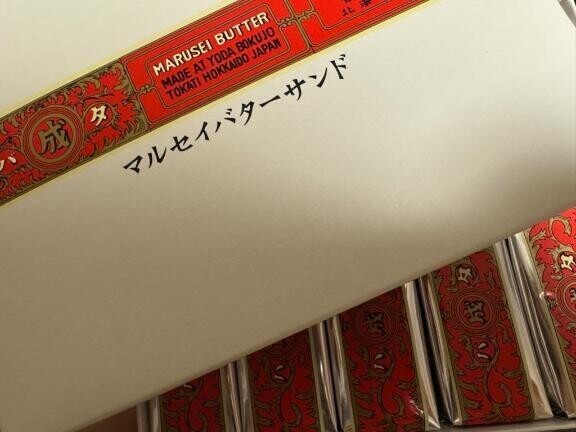 MARUSEI BUTTER
MADE AT YODA BOKUJO
TOKATI HOKKAIDO JAPAN
北海
バ成タ
マルセイバターサンド
タ
成
バ
成
バ
バ